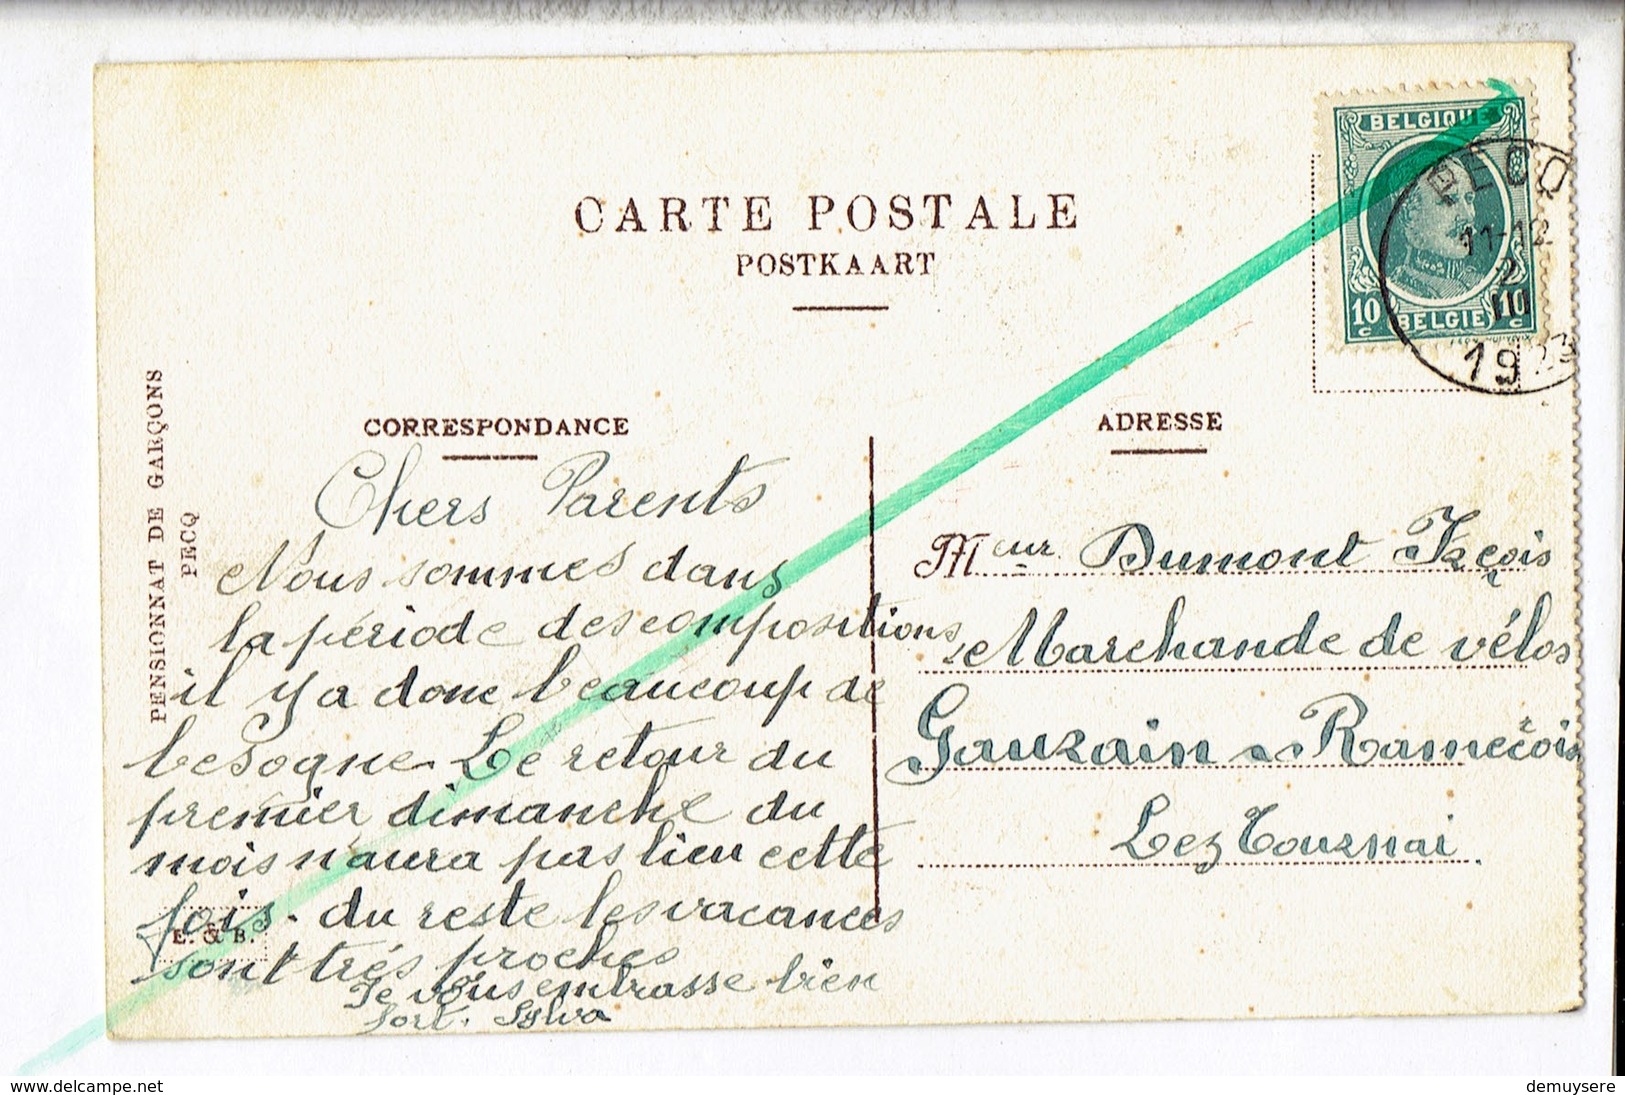 CARTE POSTALE
POSTKAART
BELGIQUE
10 c
10 c
BELGIE
PECQ
11-12
2
III
19
PENSIONNAT DE GARÇONS
PECQ
CORRESPONDANCE
Chers Parents
Nous sommes dans
la période des compositions
il y a donc beaucoup de
besogne. Le retour du
premier dimanche du
mois n'aura pas lieu cette
fois. du reste les vacances
sont très proches
Je vous embrasse bien
fort. Sylva
E. & B.
ADRESSE
Meur. Dumont Frçois
Marchande de vélos
Gaurain Ramecrois
Lez Tournai.
delcampe.net
demuysere